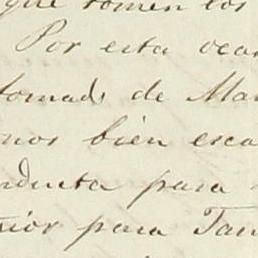 que tomen los
Por esta ocas
tomado de Mar
nos bien esca
nducta para
erior para Tam